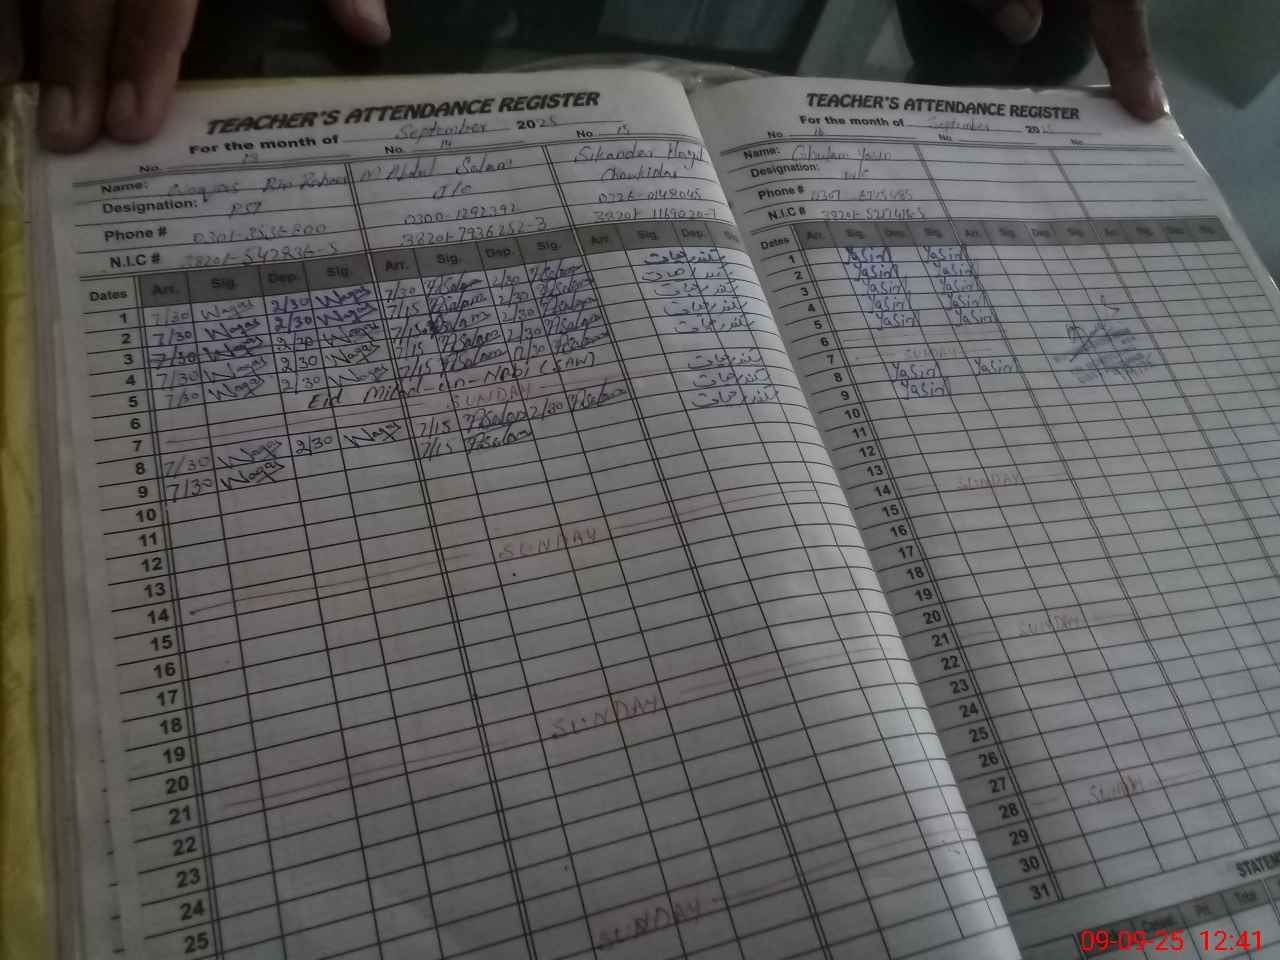 TEACHER'S ATTENDANCE REGISTER
For the month of September 2025
No. 13 No. 14 No. 15
Name: Waqas M Abdul Salam Sikandar Hayat
Designation: PST Chowkidar
Phone # 0300-1292392
N.I.C # 38201-7936252-3
Dates Arr. Sig. Dep. Sig. Arr. Sig. Dep. Sig. Arr. Sig. Dep. Sig.
1 7/30 Waqas 2/30 Waqas 7/30 Salam 2/30 Salam سکندر حیات
2 7/30 Waqas 2/30 Waqas 7/15 Salam 2/30 Salam سکندر حیات
3 7/30 Waqas 2/30 Waqas 7/15 Salam 2/30 Salam سکندر حیات
4 7/30 Waqas 2/30 Waqas 7/15 Salam 2/30 Salam سکندر حیات
5 7/30 Waqas 2/30 Waqas 7/15 Salam 12/30 Salam سکندر حیات
6 Eid Milad un-Nabi (SAW)
7 SUNDAY
8 7/30 Waqas 2/30 Waqas 7/15 Salam 2/30 Salam سکندر حیات
9 7/30 Waqas 7/15 Salam سکندر حیات
10
11
12
13
14 SUNDAY
15
16
17
18
19
20
21 SUNDAY
22
23
24
25
SUNDAY
TEACHER'S ATTENDANCE REGISTER
For the month of September 2025
No. 16 No. No.
Name: Ghulam Yasin
Designation:
Phone #
N.I.C #
Dates Arr. Sig. Dep. Sig. Arr. Sig. Dep. Sig. Arr. Sig. Dep. Sig.
1 Yasin Yasin
2 Yasin Yasin
3 Yasin Yasin
4 Yasin Yasin
5 Yasin Yasin
6
7 SUNDAY
8 Yasin Yasin
9 Yasin
10
11
12
13
14 SUNDAY
15
16
17
18
19
20
21 SUNDAY
22
23
24
25
26
27
28 SUNDAY
29
30
31
Total
09-09-25 12:41